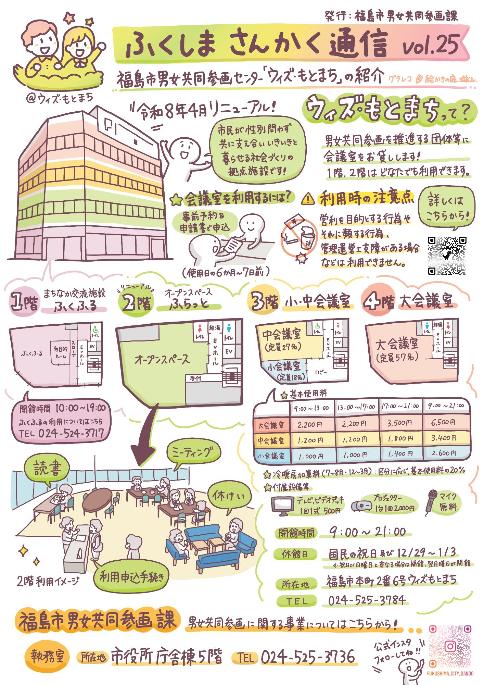 発行：福島市男女共同参画課
ふくしま さんかく通信 vol.25
福島市男女共同参画センター「ウィズ・もとまち」の紹介
@ウィズ・もとまち
令和8年4月リニューアル！
市民が性別問わず
共に支え合い、いきいきと
暮らせる社会づくりの
拠点施設です！
ウィズ・もとまちって？
男女共同参画を推進する団体等に
会議室をお貸しします！
1階、2階はどなたでも利用できます。
会議室を利用するには？
事前予約&
申請書で申込
(使用日の6か月〜7日前)
利用時の注意点
営利を目的とする行為や
それに類する行為、
管理運営上支障がある場合
などは利用できません。
詳しくは
こちらから！
1階 まちなか交流施設
ふくふる
ふくふる
開館時間 10:00〜19:00
ふくふるの利用についてはこちら
TEL 024-524-3717
リニューアル
2階 オープンスペース
ふらっと
オープンスペース
EV
3階 小・中会議室
中会議室
(定員27名)
小会議室
(定員18名)
ロビー
EV
4階 大会議室
大会議室
(定員57名)
EV
基本使用料
9:00〜13:00 13:00〜17:00 17:00〜21:00 9:00〜21:00
大会議室 2,200円 2,200円 3,500円 6,500円
中会議室 1,200円 1,200円 1,800円 3,400円
小会議室 1,000円 1,000円 1,400円 2,600円
冷暖房加算料(7〜8月・12〜3月) 区分に応じ、基本使用料の20%
付属設備等
テレビ、ビデオデッキ
1回1式 500円
プロジェクター
1台1回2,000円
マイク
無料
開館時間 9:00〜21:00
休館日 国民の祝日及び12/29〜1/3
所在地 福島市本町2番6号ウィズもとまち
TEL 024-525-3784
読書
ミーティング
休けい
利用申込手続き
2階利用イメージ
福島市男女共同参画課 男女共同参画に関する事業についてはこちらから！
執務室 所在地 市役所庁舎棟5階 TEL 024-525-3736
公式インスタ
フォローしてね!!
FUKUSHIMA_CITY_DANJO